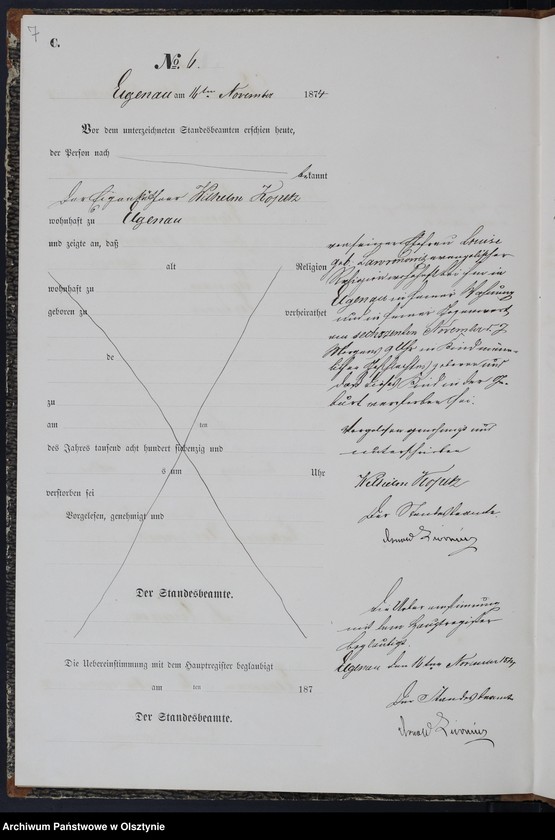 7
C.
No. 6.
Elgenau am 16ten November 1874
Vor dem unterzeichneten Standesbeamten erschien heute,
der Person nach
bekannt
Der Eigenkäthner Wilhelm
wohnhaft zu Elgenau
und zeigte an, daß
alt Religion
wohnhaft zu
geboren zu verheirathet
de
zu
am ten
des Jahres tausend acht hundert siebenzig und
s um Uhr
verstorben sei
Vorgelesen, genehmigt und
Der Standesbeamte.
Die Uebereinstimmung mit dem Hauptregister beglaubigt
am ten 187
Der Standesbeamte.
von seiner Ehefrau Louise
geb. evangelischer
Religion wohnhaft bei ihm in
Elgenau in seiner Wohnung
und in seiner Gegenwart
am sechszehnten November d. J.
Morgens 9 Uhr ein Kind männ-
lichen Geschlechtes geboren und
daß dieses Kind in der Ge-
burt verstorben sei.
Vorgelesen genehmigt und
unterschrieben
Wilhelm
Der Standesbeamte
Die Uebereinstimmung
mit dem Hauptregister
beglaubigt.
Elgenau den 16ten November 1874
Der Standesbeamte
Archiwum Państwowe w Olsztynie